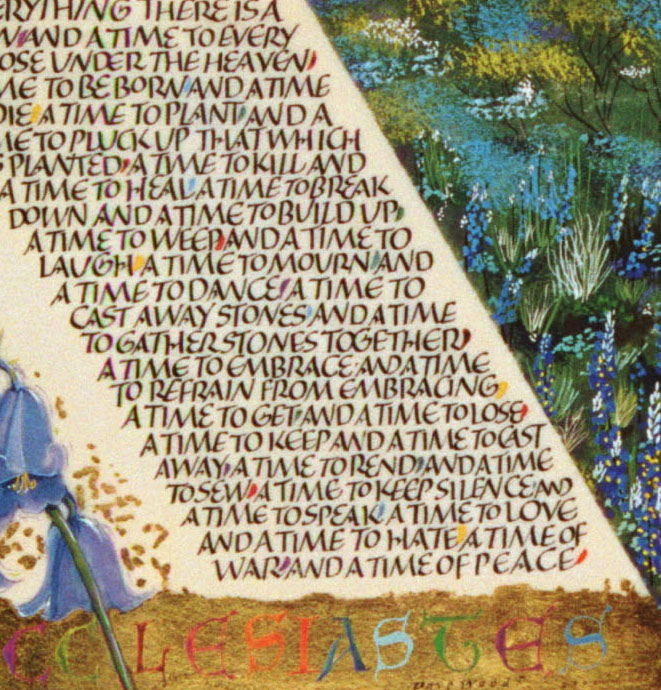 ERYTHING THERE IS A
N AND A TIME TO EVERY
OSE UNDER THE HEAVEN,
ME TO BE BORN AND A TIME
DIE, A TIME TO PLANT, AND A
ME TO PLUCK UP THAT WHICH
S PLANTED, A TIME TO KILL AND
A TIME TO HEAL, A TIME TO BREAK
DOWN AND A TIME TO BUILD UP,
A TIME TO WEEP, AND A TIME TO
LAUGH, A TIME TO MOURN, AND
A TIME TO DANCE, A TIME TO
CAST AWAY STONES, AND A TIME
TO GATHER STONES TOGETHER,
A TIME TO EMBRACE, AND A TIME
TO REFRAIN FROM EMBRACING,
A TIME TO GET, AND A TIME TO LOSE,
A TIME TO KEEP AND A TIME TO CAST
AWAY, A TIME TO REND, AND A TIME
TO SEW, A TIME TO KEEP SILENCE AND
A TIME TO SPEAK, A TIME TO LOVE
AND A TIME TO HATE, A TIME OF
WAR, AND A TIME OF PEACE,
CCLESIASTES